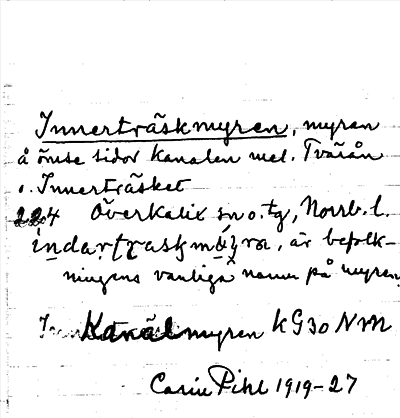 Innerträskmyren, myren
å ömse sidor kanalen mel. Tvärån
o. Innerträsket
224 Överkalix sn o. tg, Norrb. l.
är befolk-
ningens vanliga namn på myren
Kanälmyren kG30NM
Carin Pihl 1919-27